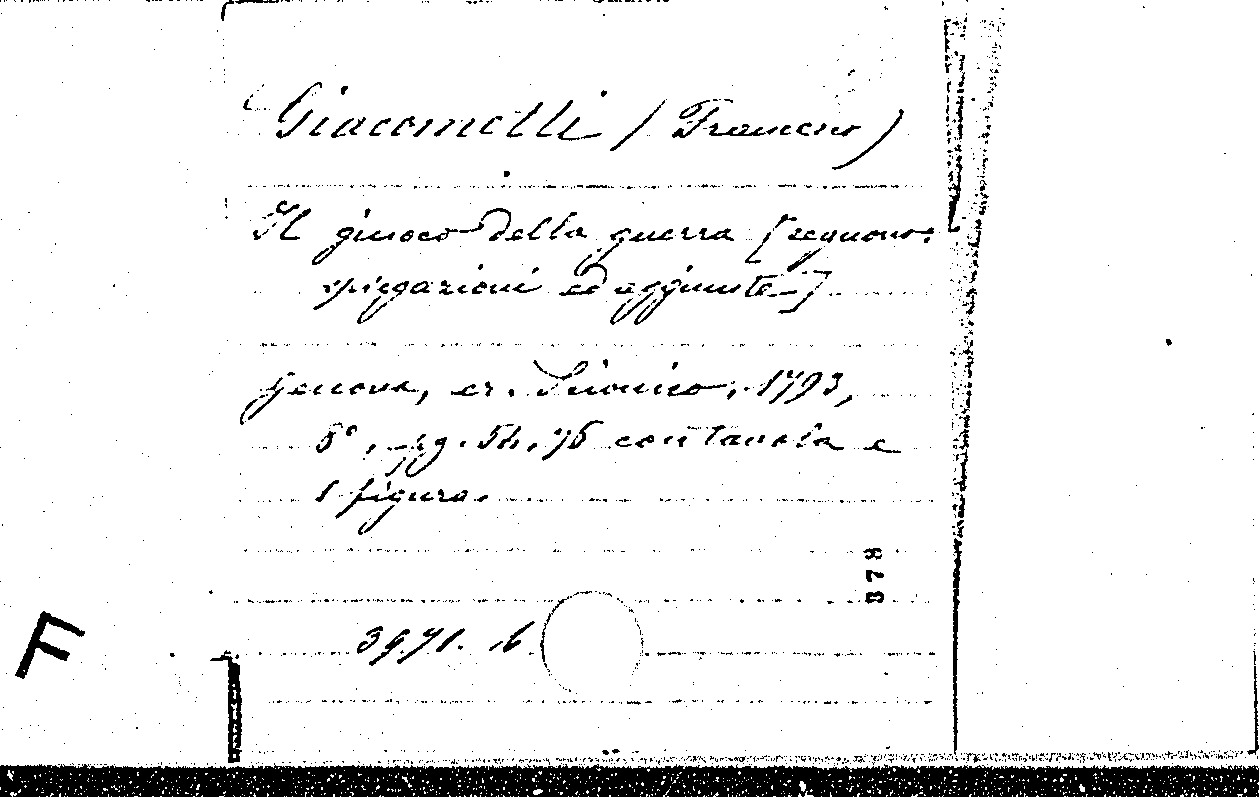 Giacomelli (Francesco)
Il giuoco della guerra [seguono:
spiegazioni ed aggiunte]
Genova, er. 1793,
8°, pg. 54, 76 con tavola e
1 figura.
39.71. b
878
F